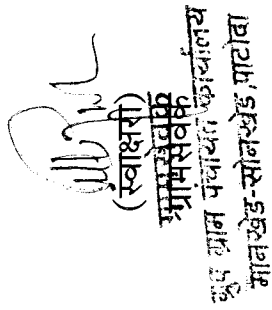 (स्वाक्षरी)
ग्रामसेवक
ग्रामसेवक
ग्रुप ग्राम पंचायत कार्यालय
मानखेड-सोनखेड, पाटोदा